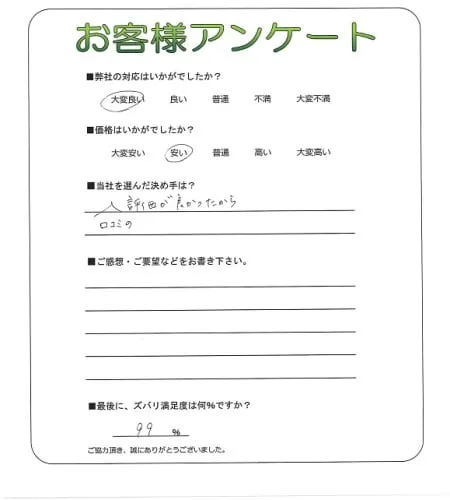 お客様アンケート
■弊社の対応はいかがでしたか？
大変良い 良い 普通 不満 大変不満
■価格はいかがでしたか？
大変安い 安い 普通 高い 大変高い
■当社を選んだ決め手は？
評価が良かったから
口コミの
■ご感想・ご要望などをお書き下さい。
■最後に、ズバリ満足度は何％ですか？
99 ％
ご協力頂き、誠にありがとうございました。